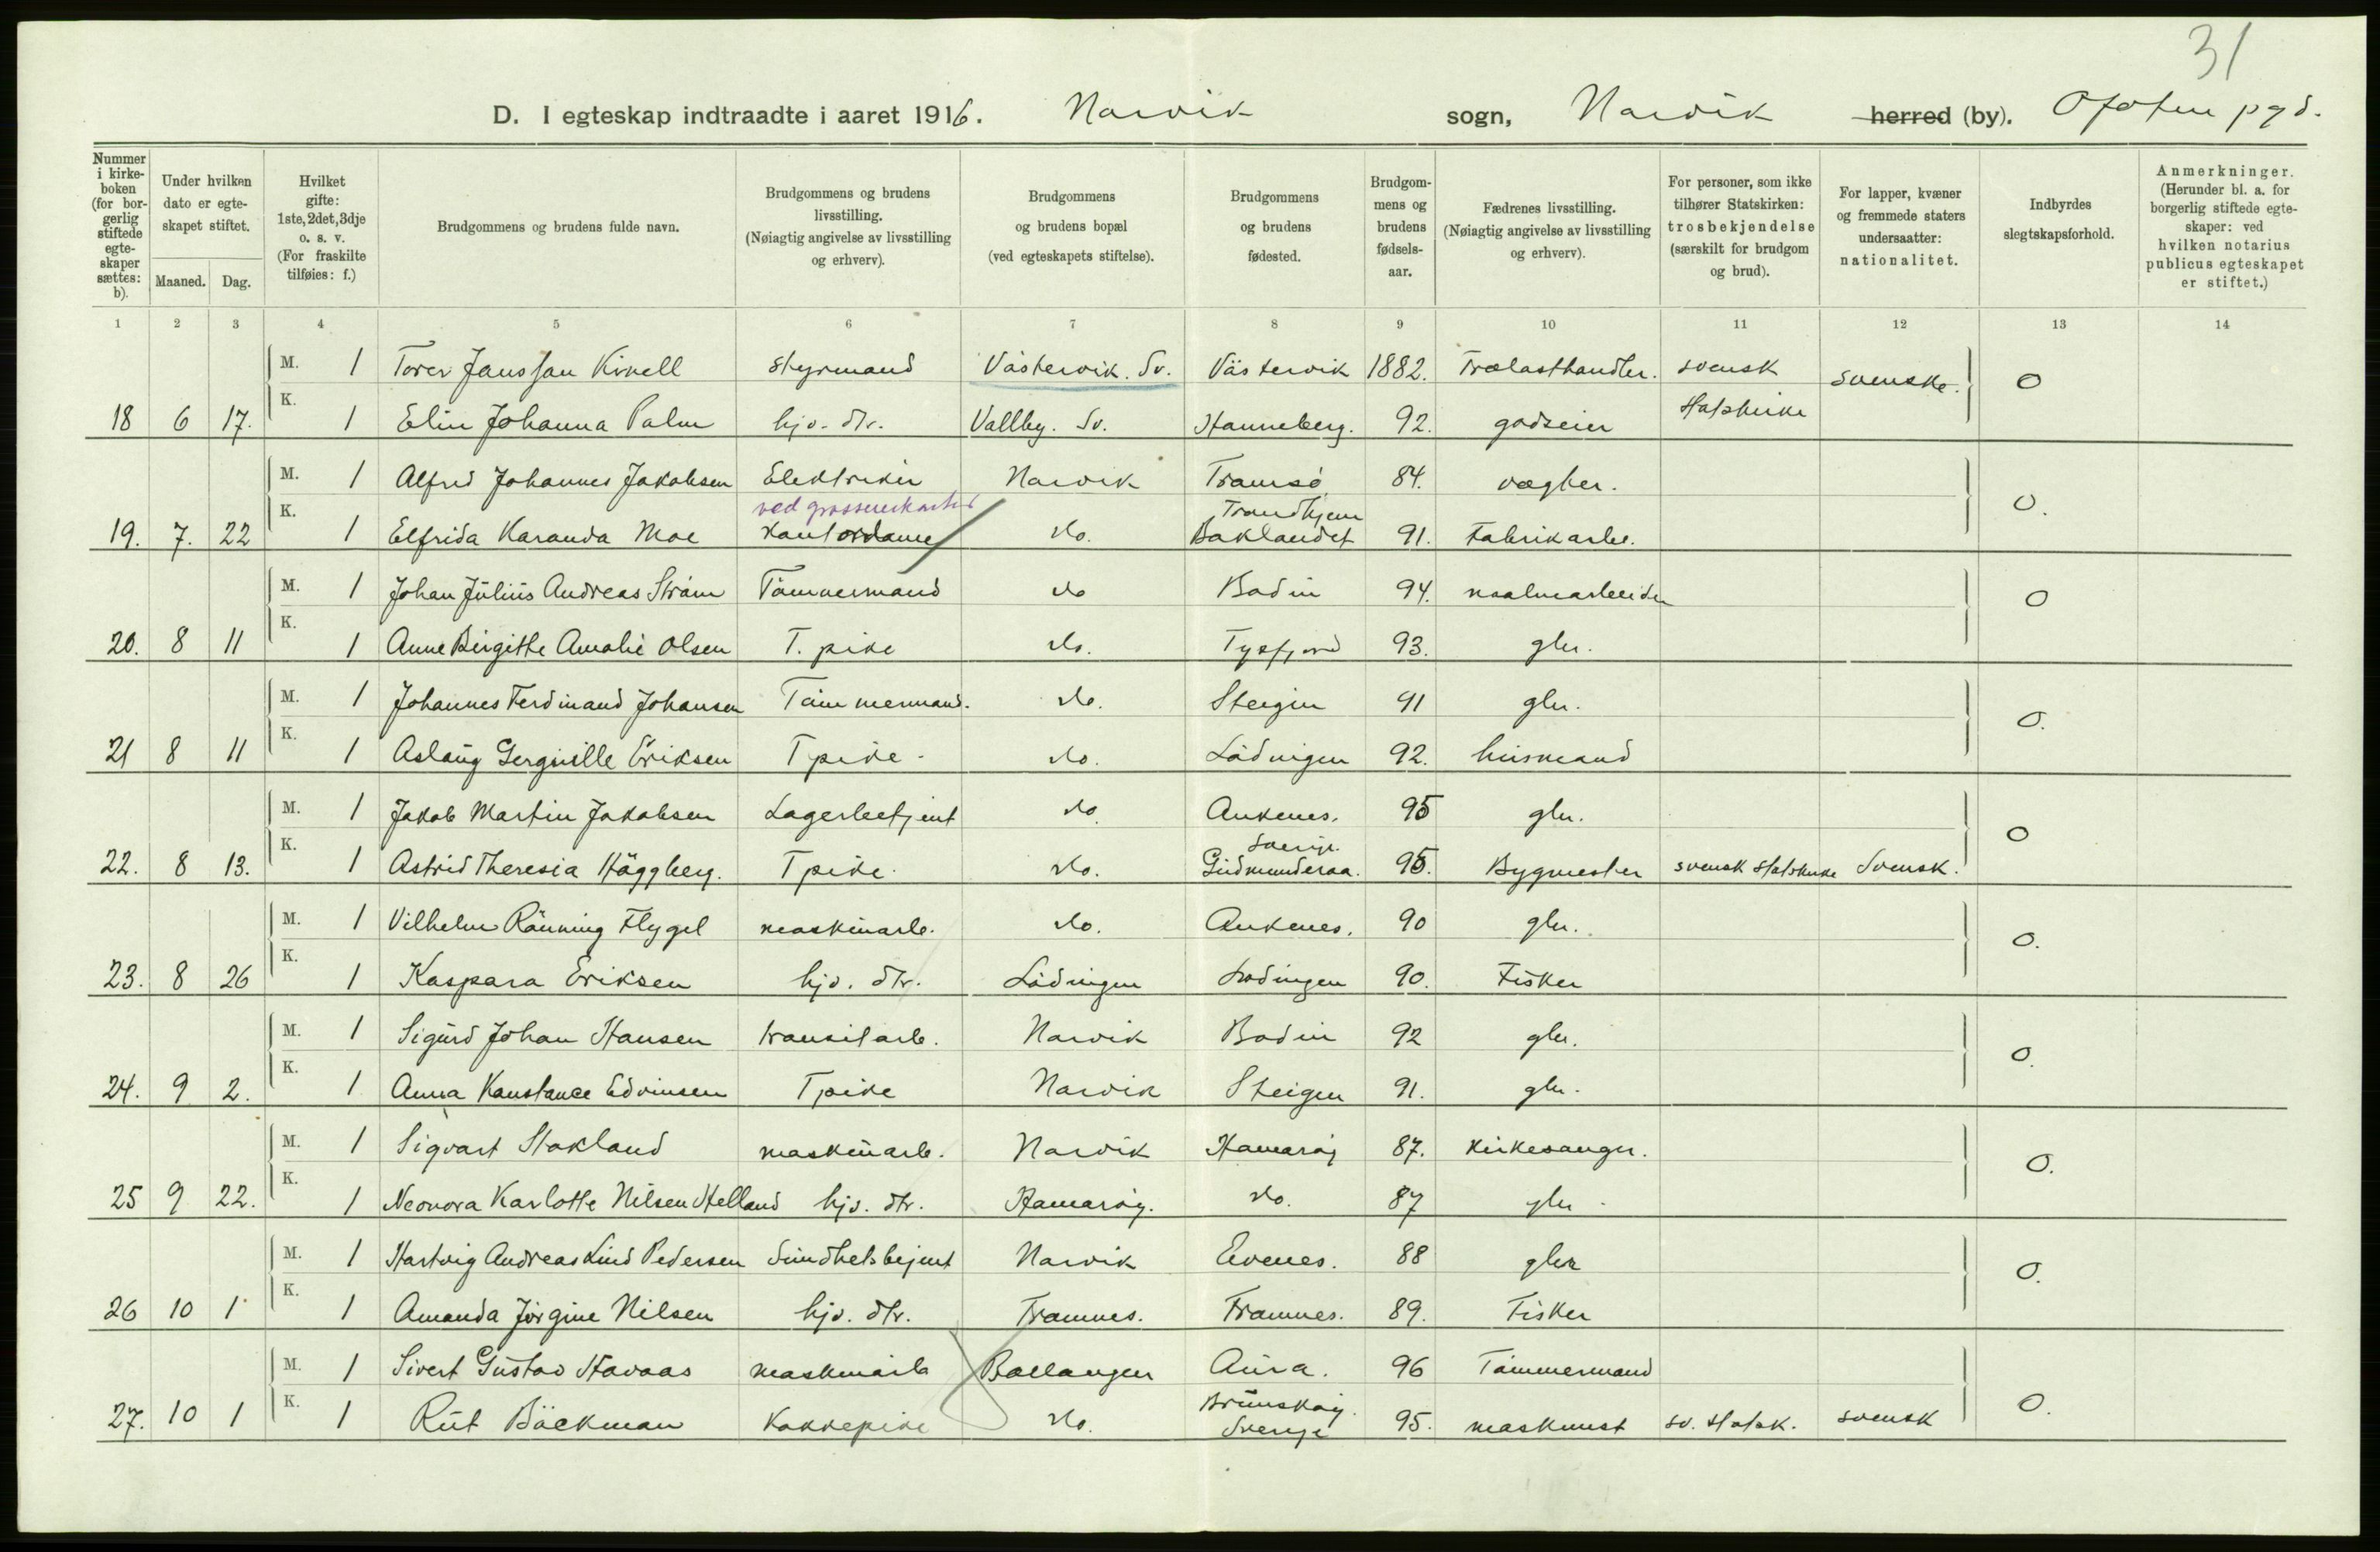 31
D. I egteskap indtraadte i aaret 1916. Narvik sogn, Narvik herred (by). Ofoten pgd.
Nummer i kirkeboken (for borgerlig stiftede egteskaper sættes: b).
Under hvilken dato er egteskapet stiftet.
Maaned. Dag.
Hvilket gifte: 1ste, 2det, 3dje o. s. v. (For fraskilte tilføies: f.)
Brudgommens og brudens fulde navn.
Brudgommens og brudens livsstilling. (Nøiagtig angivelse av livsstilling og erhverv).
Brudgommens og brudens bopæl (ved egteskapets stiftelse).
Brudgommens og brudens fødested.
Brudgommens og brudens fødselsaar.
Fædrenes livsstilling. (Nøiagtig angivelse av livsstilling og erhverv).
For personer, som ikke tilhører Statskirken: trosbekjendelse (særskilt for brudgom og brud).
For lapper, kvæner og fremmede staters undersaatter: nationalitet.
Indbyrdes slegtskapsforhold.
Anmerkninger. (Herunder bl. a. for borgerlig stiftede egteskaper: ved hvilken notarius publicus egteskapet er stiftet.)
1 2 3 4 5 6 7 8 9 10 11 12 13 14
M. 1 Torer Jansson Kinell styrmand Västervik. Sv. Västervik 1882. Trælasthandler. svensk svenske. 0
18 6 17. K. 1 Elin Johanna Palm hjv. dtr. Vallby. Sv. Hanneberg. 92. godseier Statskirke
M. 1 Alfred Johannes Jakobsen Elektriker Narvik Tromsø 84. vægter. 0.
ved grossererkontor Trondhjem
19. 7. 22 K. 1 Elfrida Karanda Moe Kontordame do. Baklandet 91. Fabrikarb.
M. 1 Johan Julius Andreas Strøm Tømmermand do Bodin 94. malmarbeider 0
20. 8 11 K. 1 Anne Birgitte Amalie Olsen T. pike do. Tysfjord 93. gbr.
M. 1 Johannes Ferdinand Johansen Tømmermand. do. Steigen 91 gbr. 0.
21 8 11 K. 1 Aslaug Eriksen T pike do. Lødingen 92. husmand
M. 1 Jakob Martin Jakobsen Lagerbetjent do. Ankenes. 95 gbr. 0
Sverige.
22. 8 13. K. 1 Astrid Theresia Häggberg. T pike do. Gudmunderaa. 95. Bygmester svensk statskirke Svensk.
M. 1 Vilhelm Rønning Flygel maskinarb. do. Ankenes. 90 gbr. 0.
23. 8 26 K. 1 Kaspara Eriksen hjv. dtr. Lødingen Lødingen 90. Fisker
M. 1 Sigurd Johan Hansen transitarb. Narvik Bodin 92 gbr. 0.
24. 9 2. K. 1 Anna Konstance Edvinsen T pike Narvik Steigen 91. gbr.
M. 1 Sigvart Stokland maskinarb. Narvik Hamarøy 87. kirkesanger. 0.
25 9 22. K. 1 Neonora Karlotte Nilsen Helland hjv. dtr. Hamarøy. do. 87 gbr
M. 1 Hartvig Andreas Lind Pedersen Sundhetsbetjent Narvik Evenes. 88 gbr 0.
26 10 1 K. 1 Amanda Jørgine Nilsen hjv. dtr. Trannes. Trannes. 89. Fisker
M. 1 Sivert Gustav Havaas maskinarb Ballangen Aura. 96 Tømmermand 0.
Brunskog.
27. 10 1 K. 1 Rut Bäckman Kokkepike do. Sverige 95. maskinist sv. statsk. svensk